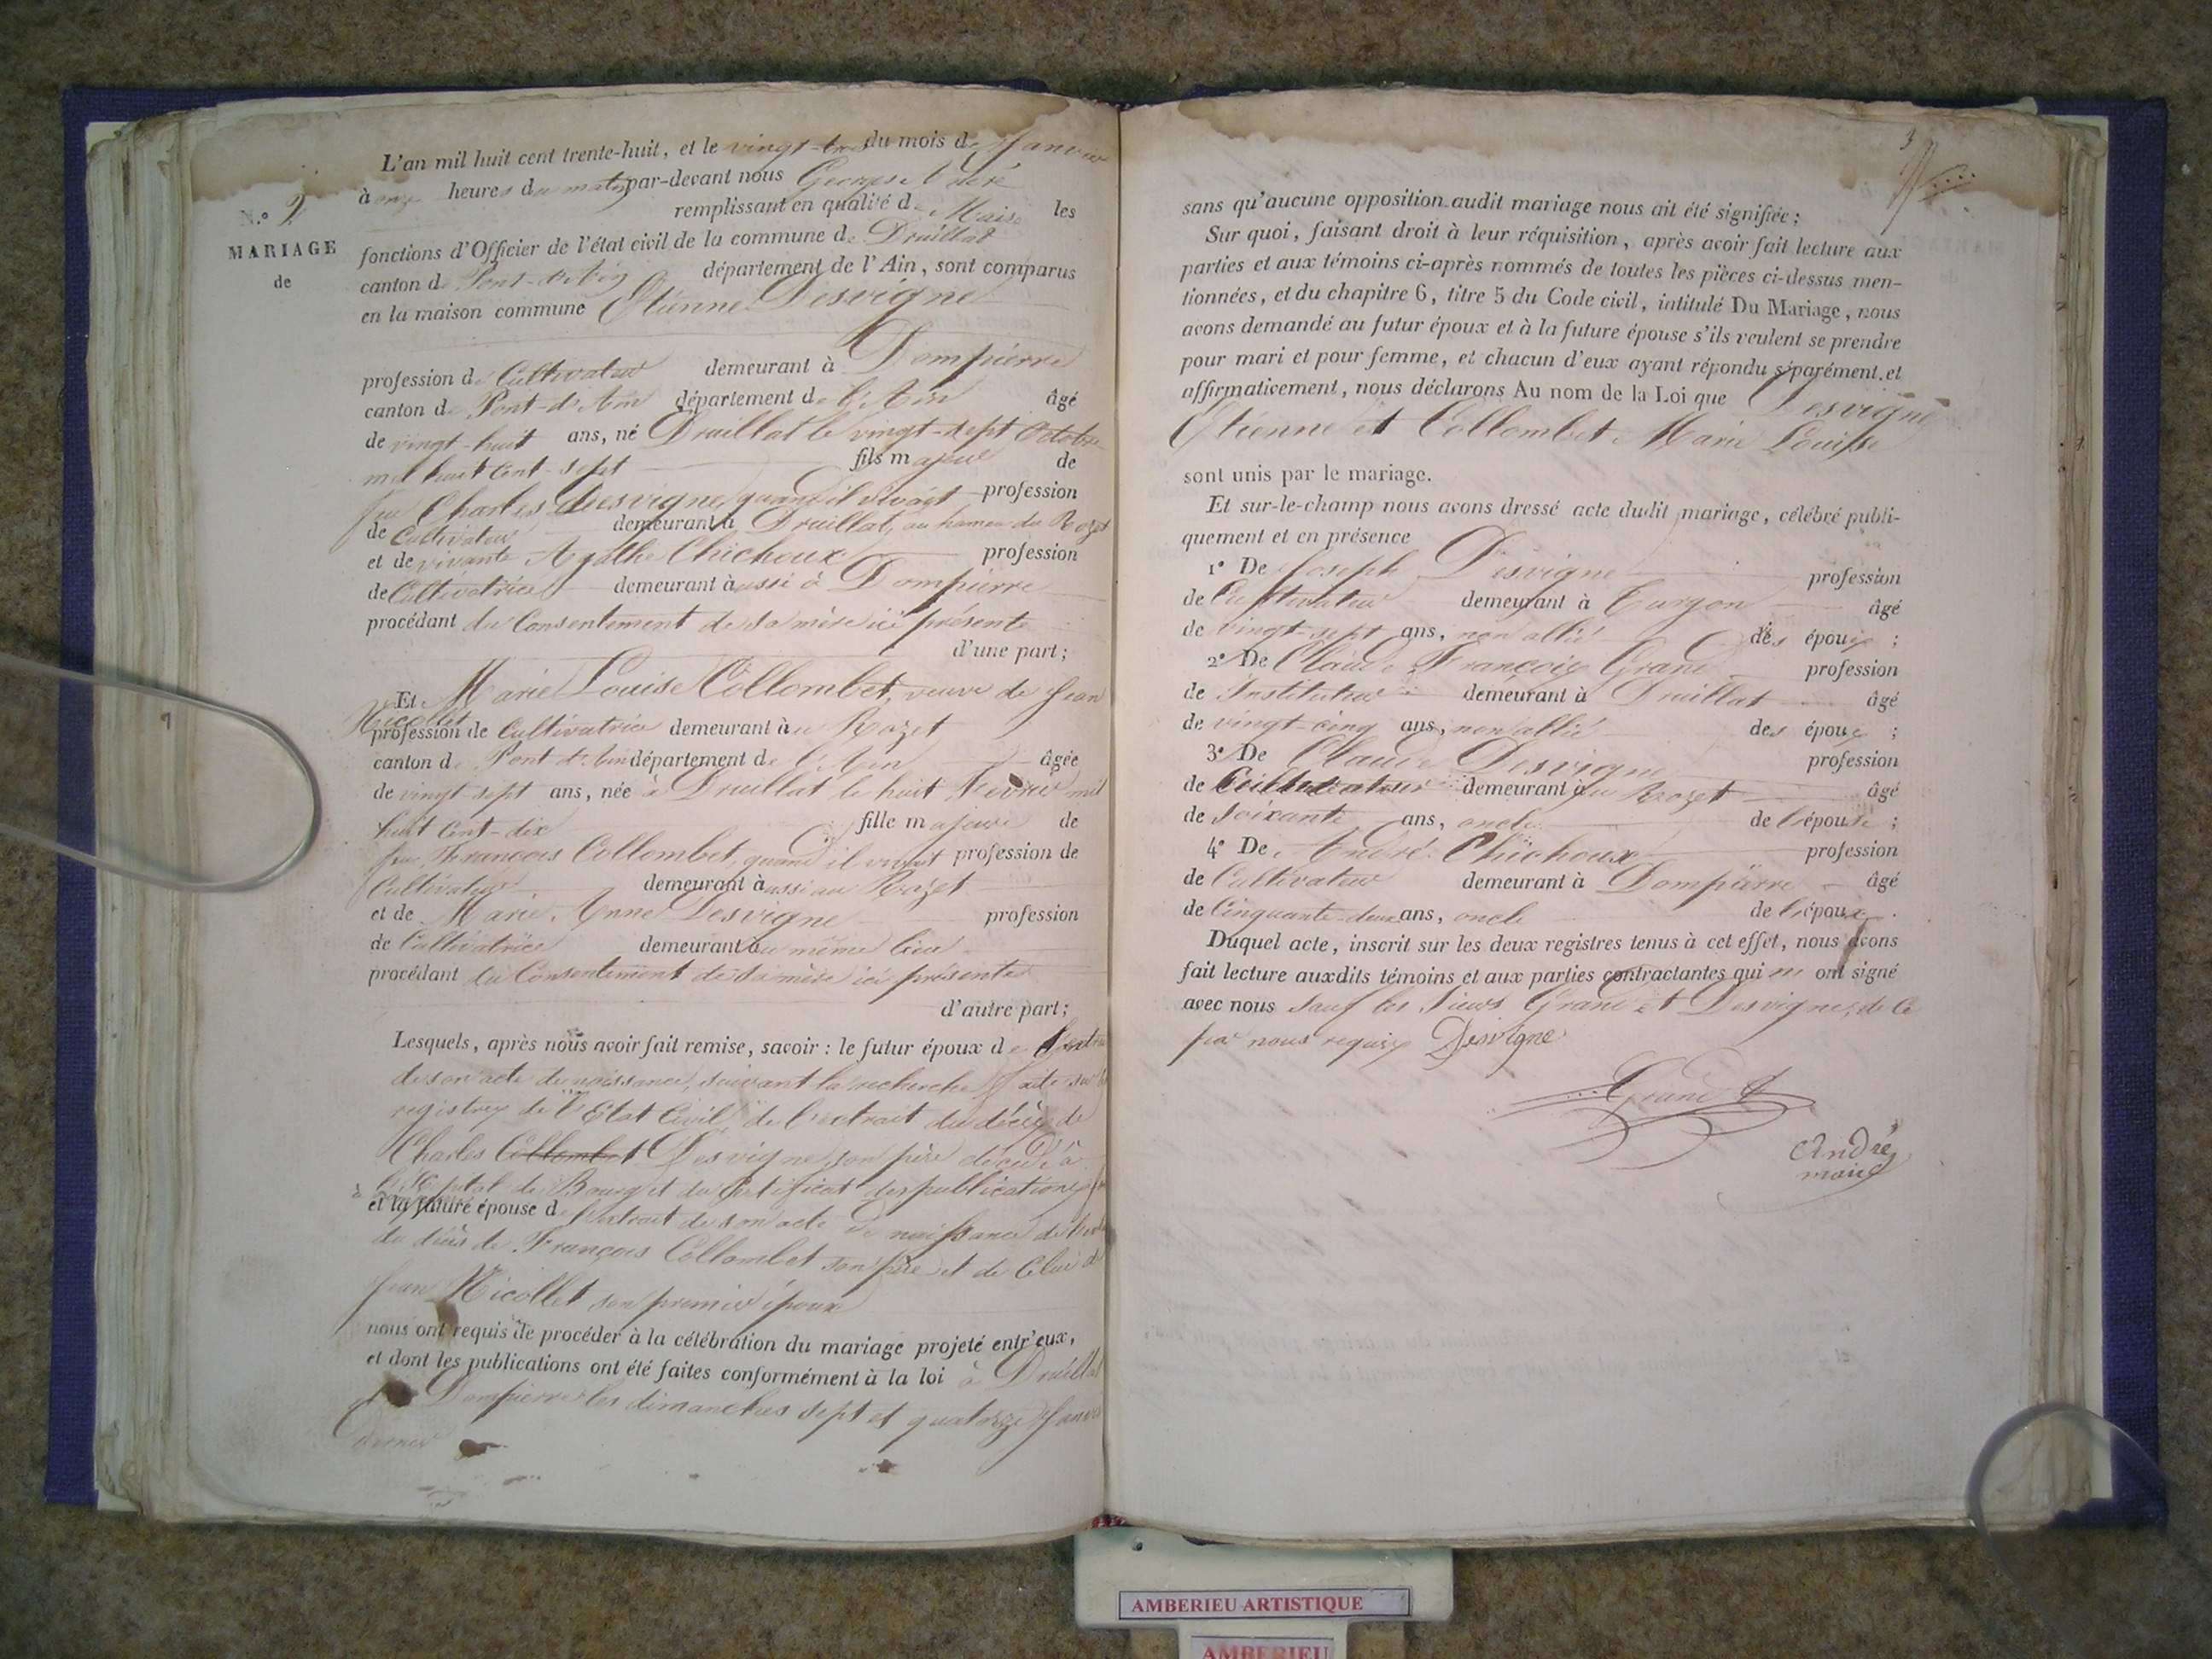 N.º 2
MARIAGE
de
L'an mil huit cent trente-huit, et le vingt-trois du mois de Janvier
à onze heures du matin par-devant nous Georges André
remplissant en qualité de Maire les
fonctions d'Officier de l'état civil de la commune de Druillat
canton de Pont-d'Ain département de l'Ain, sont comparus
en la maison commune Etienne Desvigne
profession de Cultivateur demeurant à Dompierre
canton de Pont-d'Ain département de l'Ain âgé
de vingt-huit ans, né Druillat le vingt-sept Octobre
mil huit cent-sept fils majeur de
feu Charles Desvigne, quand il vivait profession
de Cultivateur demeurant à Druillat, au hameau du Rozet
et de vivante Agathe Chichoux profession
de Cultivatrice demeurant aussi à Dompierre
procédant du Consentement de sa mère ici présente
d'une part;
Et Marie Louise Collombet, veuve de Jean
Nicollet
profession de Cultivatrice demeurant au Rozet
canton de Pont-d'Ain département de l'Ain âgée
de vingt-sept ans, née à Druillat le huit Février mil
huit Cent-dix fille majeure de
feu François Collombet, quand il vivait profession de
Cultivateur demeurant aussi au Rozet
et de Marie Anne Desvigne profession
de Cultivatrice demeurant au même lieu
procédant du Consentement de sa mère ici présente
d'autre part;
Lesquels, après nous avoir fait remise, savoir: le futur époux de l'extrait
de son acte de naissance, suivant la recherche faite sur les
registres de l'Etat Civil, de l'extrait du décès de
Charles Collombet Desvigne, son père décédé à
l'hôpital de Bourg et du Certificat des publications
et la future épouse de l'extrait de son acte de naissance de l'extrait
du décès de François Collombet son père et de Celui de
Jean Nicollet son premier époux
nous ont requis de procéder à la célébration du mariage projeté entr'eux,
et dont les publications ont été faites conformément à la loi à Druillat
Dompierre les dimanches sept et quatorze Janvier
dernier
3
sans qu'aucune opposition audit mariage nous ait été signifiée;
Sur quoi, faisant droit à leur réquisition, après avoir fait lecture aux
parties et aux témoins ci-après nommés de toutes les pièces ci-dessus men-
tionnées, et du chapitre 6, titre 5 du Code civil, intitulé Du Mariage, nous
avons demandé au futur époux et à la future épouse s'ils veulent se prendre
pour mari et pour femme, et chacun d'eux ayant répondu séparément et
affirmativement, nous déclarons Au nom de la Loi que Desvigne
Etienne et Collombet Marie Louise
sont unis par le mariage.
Et sur-le-champ nous avons dressé acte dudit mariage, célébré publi-
quement et en présence
1º De Joseph Desvigne profession
de Cultivateur demeurant à Turgon âgé
de vingt-sept ans, non allié des époux;
2º De Claude François Grand profession
de Instituteur demeurant à Druillat âgé
de vingt-cinq ans, non allié des époux;
3º De Claude Desvigne profession
de Cultivateur demeurant au Rozet âgé
de soixante ans, oncle de l'épouse;
4º De André Chichoux profession
de Cultivateur demeurant à Dompierre âgé
de Cinquante-deux ans, oncle de l'époux.
Duquel acte, inscrit sur les deux registres tenus à cet effet, nous avons
fait lecture auxdits témoins et aux parties contractantes qui ont signé
avec nous sauf les Sieurs Grand et Desvigne, de ce
par nous requis Desvigne
Grand
André
maire
AMBERIEU ARTISTIQUE
AMBERIEU